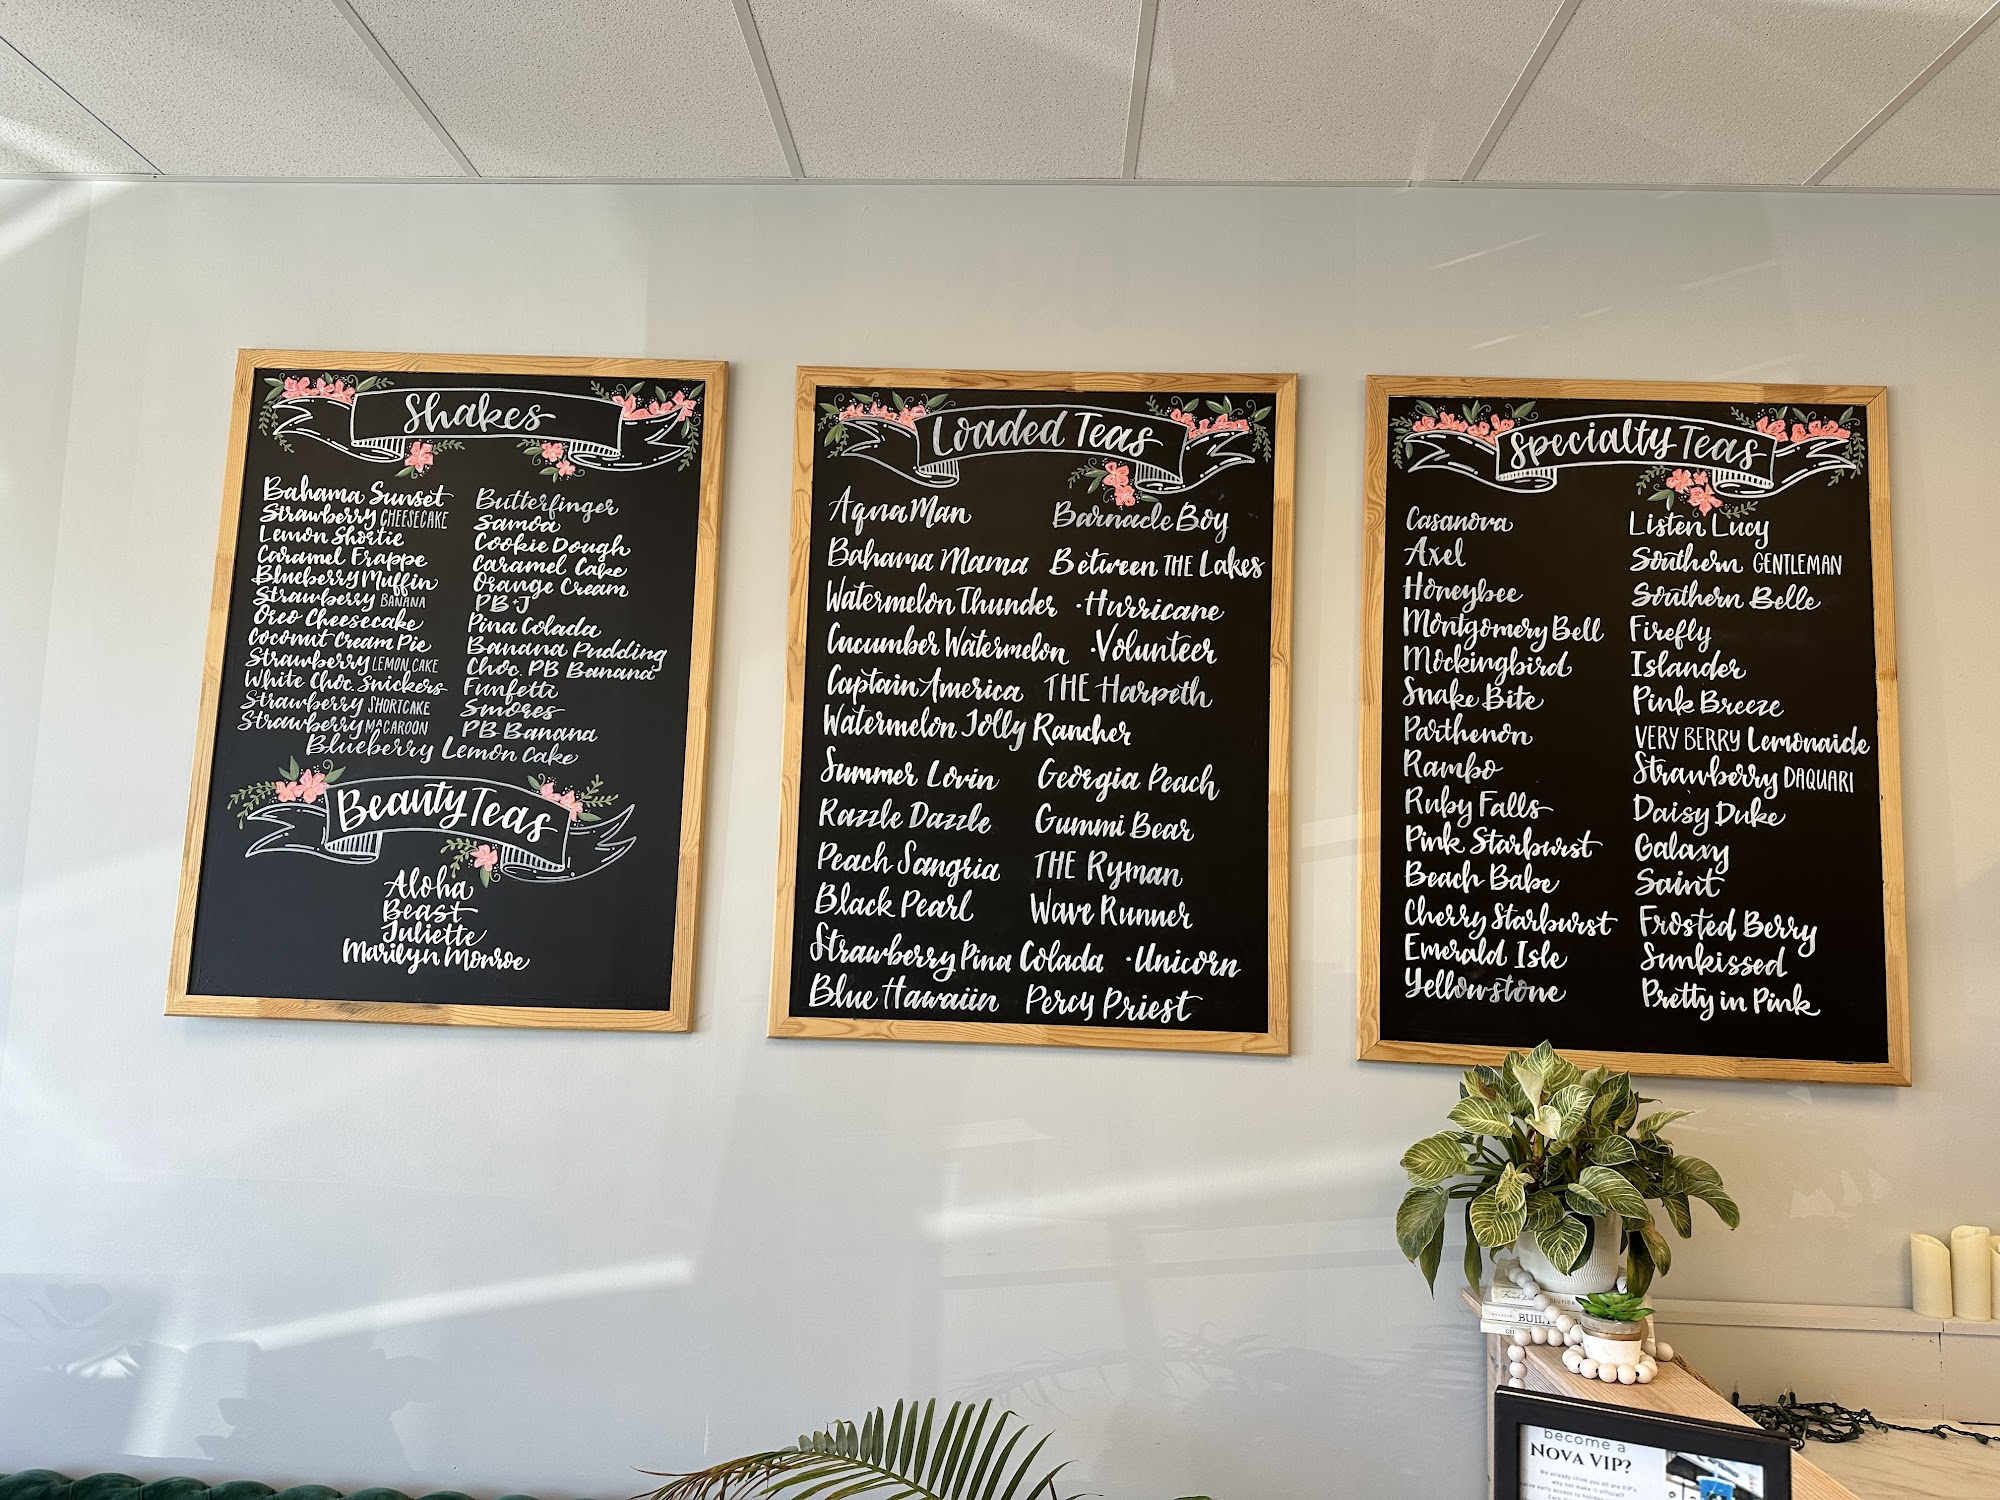 Shakes
Bahama Sunset
Strawberry CHEESECAKE
Lemon Shortie
Caramel Frappe
Blueberry Muffin
Strawberry BANANA
Oreo Cheesecake
Coconut Cream Pie
Strawberry LEMON CAKE
White Choc. Snickers
Strawberry SHORTCAKE
Strawberry MACAROON
Butterfinger
Samoa
Cookie Dough
Caramel Cake
Orange Cream
PB+J
Pina Colada
Banana Pudding
Choc. PB Banana
Funfetti
Smores
PB Banana
Blueberry Lemon Cake
Beauty Teas
Aloha
Beast
Juliette
Marilyn Monroe
Loaded Teas
Aqua Man
Barnacle Boy
Bahama Mama
Between THE Lakes
Watermelon Thunder
·Hurricane
Cucumber Watermelon
·Volunteer
Captain America
THE Harpeth
Watermelon Jolly Rancher
Summer Lovin
Georgia Peach
Razzle Dazzle
Gummi Bear
Peach Sangria
THE Ryman
Black Pearl
Wave Runner
Strawberry Pina Colada
·Unicorn
Blue Hawaiin
Percy Priest
Specialty Teas
Casanova
Axel
Honeybee
Montgomery Bell
Mockingbird
Snake Bite
Parthenon
Rambo
Ruby Falls
Pink Starburst
Beach Babe
Cherry Starburst
Emerald Isle
Yellowstone
Listen Lucy
Southern GENTLEMAN
Southern Belle
Firefly
Islander
Pink Breeze
VERY BERRY Lemonaide
Strawberry DAQUARI
Daisy Duke
Galaxy
Saint
Frosted Berry
Sunkissed
Pretty in Pink
BUILT
become a
NOVA VIP?
We already think you all are VIP's
why not make it official?